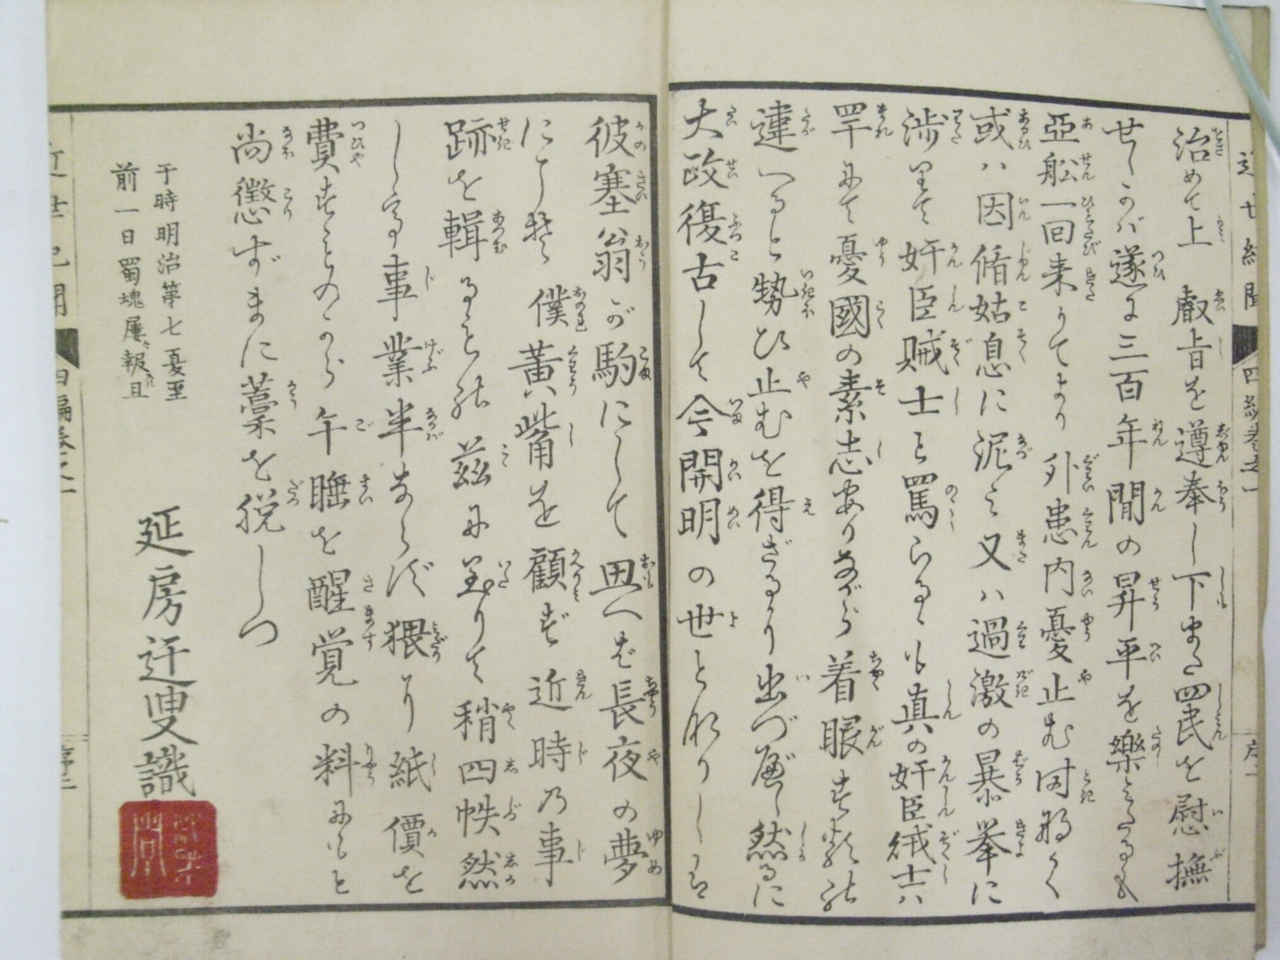 治めて上 叡旨を遵奉し下また四民を慰撫
せしかバ遂に三百年間の昇平を樂とたるも
亞舩一回来りてより外患内憂止む時なく
或ハ因循姑息に泥み又ハ過激の暴挙に
渉りて奸臣賊士と罵らるゝも真の奸臣賊士ハ
罕にて憂國の素志ありながら着眼する所の
違へると勢ひ止むを得ざるより出づ然るに
大政復古して今開明の世となりしハ
彼塞翁が駒にして思へば長夜の夢
にこそ僕黄觜を顧ず近時の事
跡を輯るとて茲に至りて稍四帙然
しき事業半ならず猥り紙價を
費すものから午睡を醒覚の料にもと
尚懲ずまに藁を脱しつ
于時明治第七夏至
前一日蜀魂屢報且
延房迂叟識
近世紀聞
四編巻之一
序二